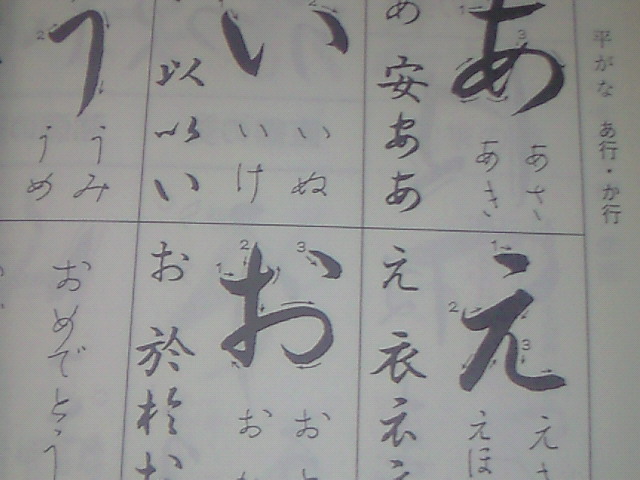 平がな あ行・か行
あ
あさ
あき
め 安 あ あ
い
いぬ
いけ
以 以 い
う
うみ
うめ
え
えさ
えほ
え 衣 衣 え
お
おと
おか
お 於 於 お
おめでとう